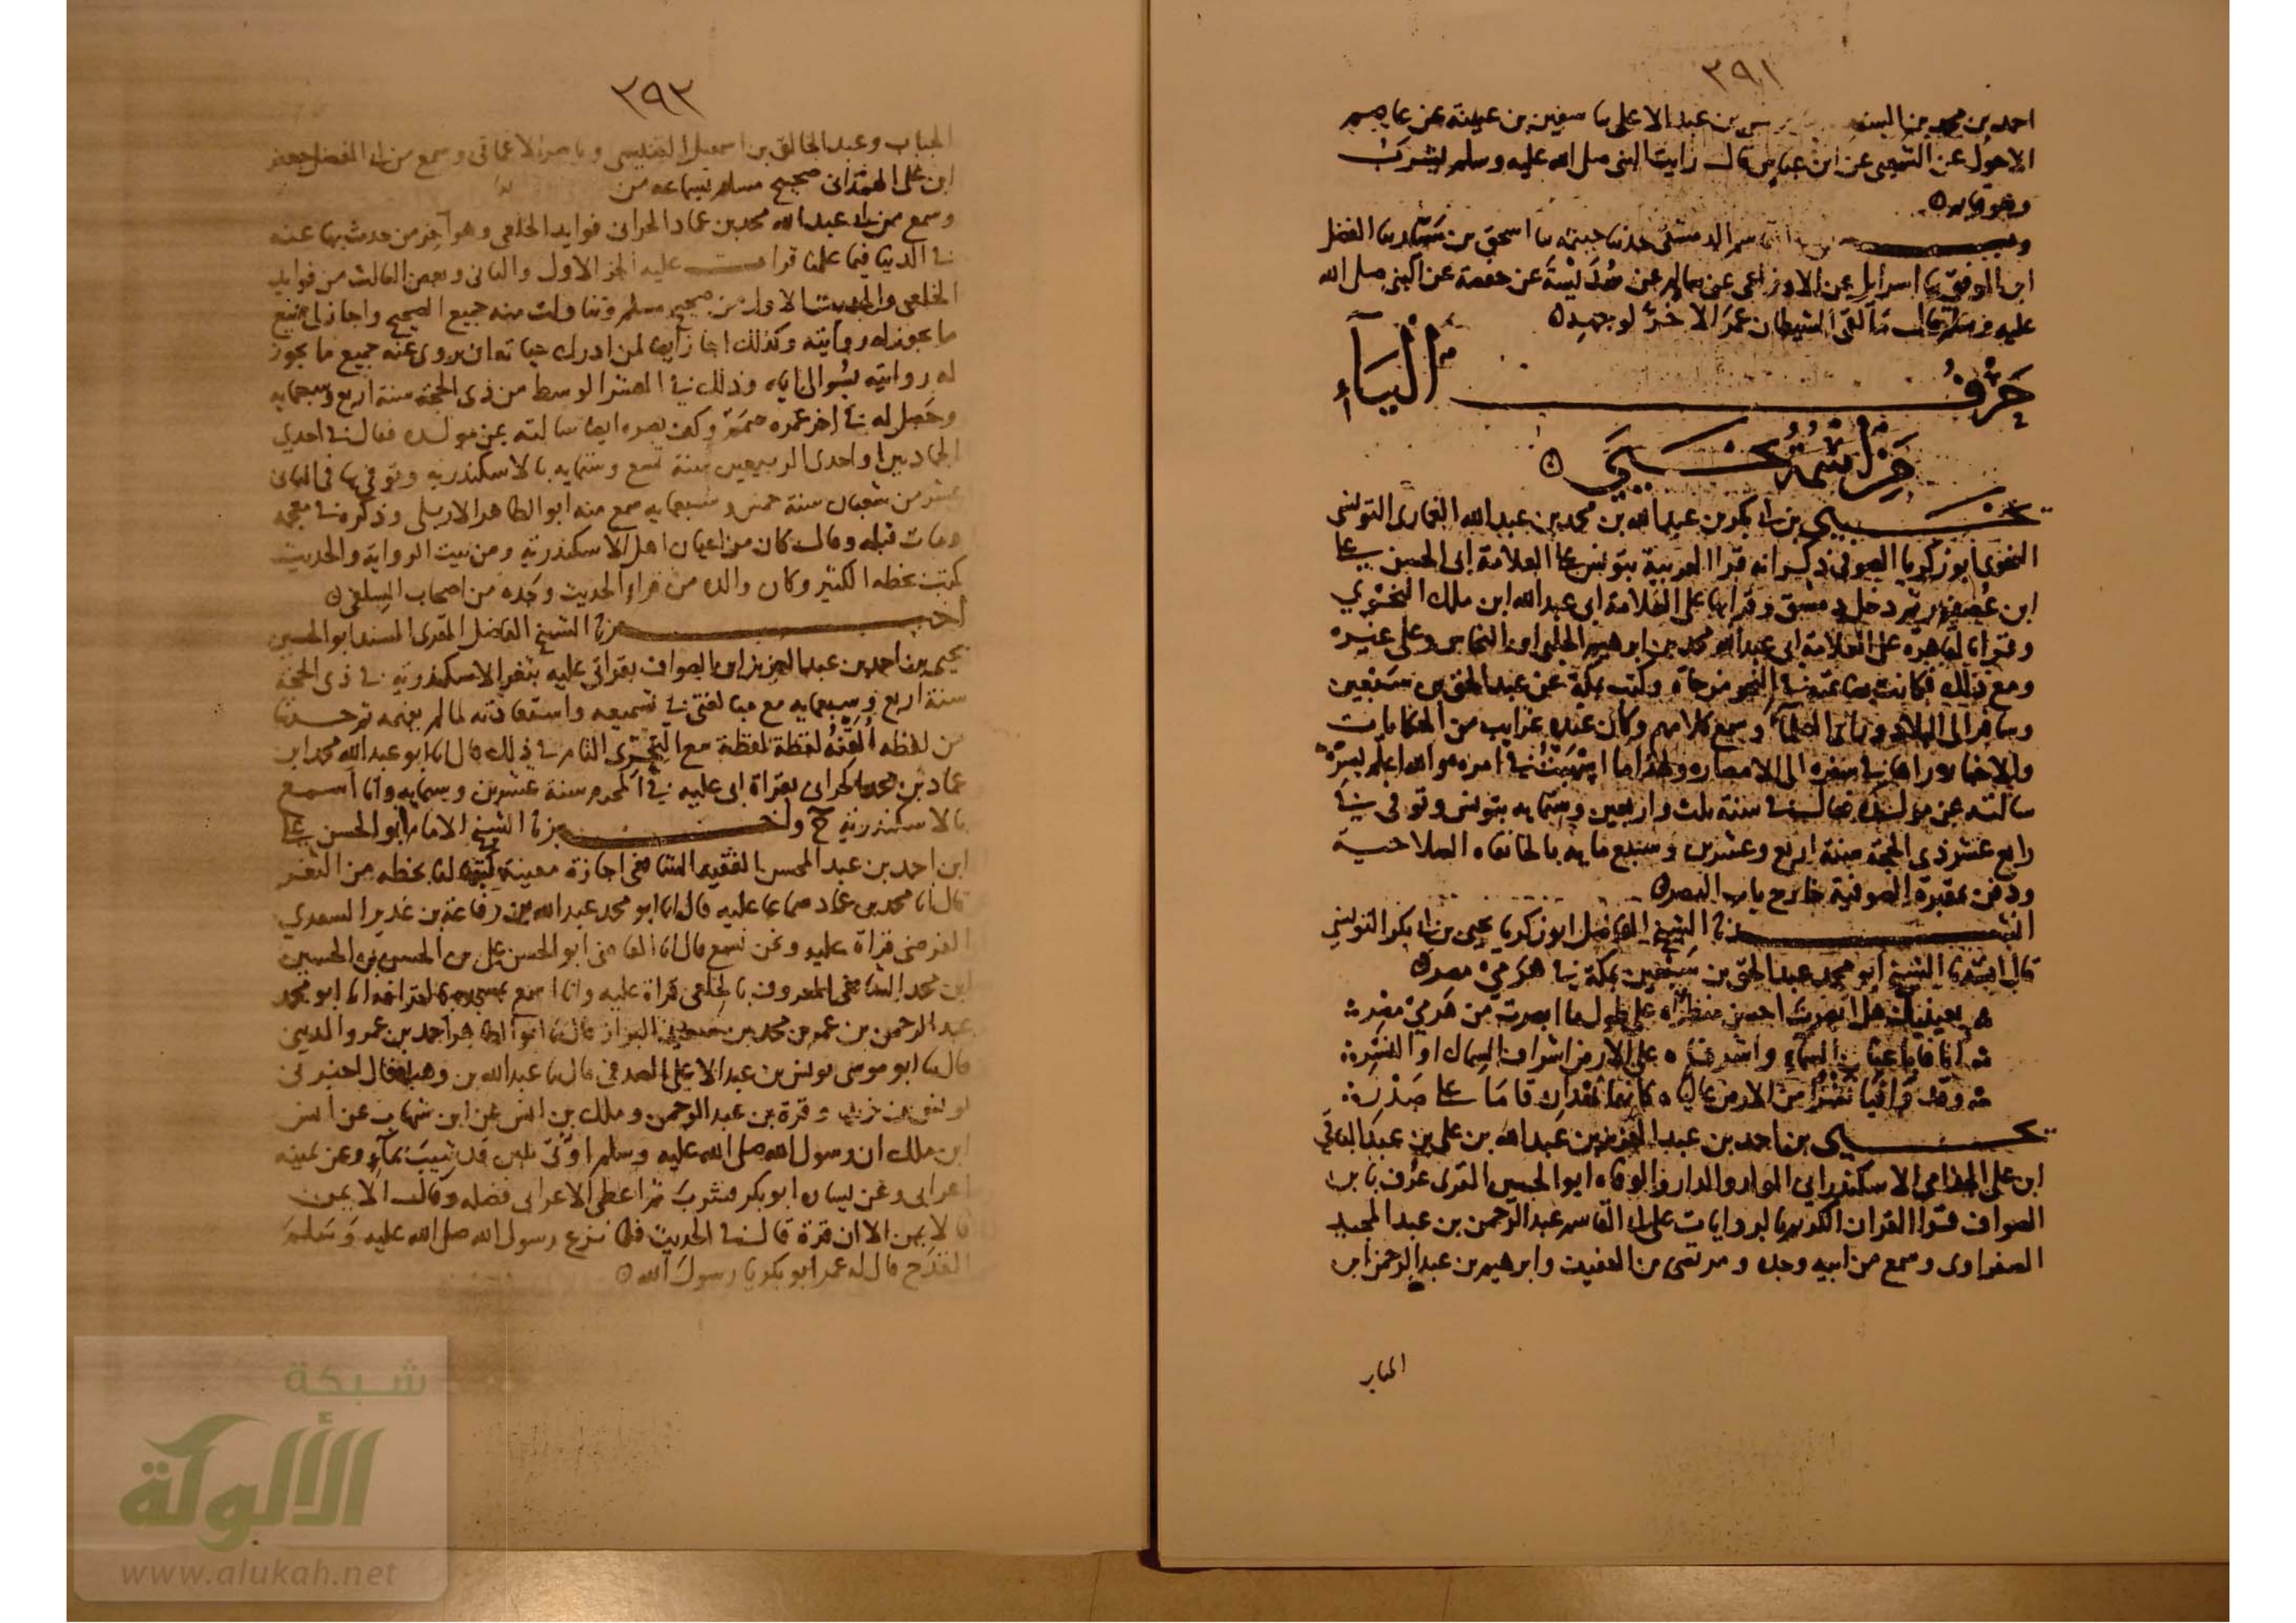 ٣٩١
احمد بن محمد بن السند يونس بن عبد الاعلى ىا سفين بن عيينة عن عاصم
الاحول عن الشعبي عن ابن عباس قال رايت النبي صلى الله عليه وسلم يشرب
وهو قايم
القاسم الدمشقي حدثنا ىا اسحق بن الفضل
ابن الموفق ىا اسرايل عن الاوزاعي عن سالم عن سُدَيْسَةَ عن حفصة عن النبي صلى الله
عليه وسلم قال ما لقي الشيطان عمر الا خَرَّ لوجهه
حَرْفُ اليَآءِ
مَنِ اسْمُهُ يَحْيَى
يحيى بن ابي بكر بن عبد الله بن محمد بن عبد الله الغماري التونسي
النحوي ابو زكريا الصوفي ذكر انه قرا العربية بتونس على العلامة ابي الحسن علي
ابن عُصفور ثم دخل دمشق وقرا بها على العلامة ابي عبد الله ابن ملك النحوي
وقرا بالقاهرة على العلامة ابي عبد الله محمد بن ابرهيم الحلبي ابن النحاس وعلى غيره
ومع ذلك فكانت بضاعته في النحو مزجاة وكتب بمكة عن عبد الحق بن سبعين
وسافر الى البلاد ورأى العلمآء وسمع كلامهم وكان عنده غرايب من الحكايات
والاخبار رواها في سفره الى الامصار ولهذا ما في امره والله اعلم بسرّه
سالته عن مولده فقال في سنة ثلث واربعين وستمايه بتونس وتوفي في
رابع عشر ذي الحجة سنة اربع وعشرين وسبع مايه بالخانقاه الصلاحية
ودفن بمقبرة الصوفية خارج باب النصر
انشدنا الشيخ الفاضل ابو زكريا يحيى بن ابي بكر التونسي
قال انشدنا الشيخ ابو محمد عبد الحق بن سبعين بمكة في هَرَمَيْ مصر
بعينيك هل ابصرت احسن منظرا على طول ما ابصرت من هَرَمَيْ مصر
انافا باعنان السمآء واشرفا على الارض اشراف السماك او النسر
وقد وافيا نشزا من الارض عاليا كانهما نهدان قاما على صدر
يحيى بن احمد بن عبد العزيز بن عبد الله بن علي بن عبد الباقي
ابن علي الجذامي الاسكندراني المولد والدار والوفاه ابو الحسين المقرى عُرف بابن
الصواف قرا القران الكريم بالروايات على ابي القاسم عبد الرحمن بن عبد المجيد
الصفراوي وسمع من ابيه وجده ومرتضى بن العفيف وابرهيم بن عبد الرحمن ابن
الجباب
٣٩٣
الجباب وعبد الخالق بن اسمعيل التنيسي وناصر الاغماتي وسمع من ابي الفضل جعفر
ابن علي الهمداني صحيح مسلم بسماعه من
وسمع من ابي عبد الله محمد بن عماد الحراني فوايد الخلعي وهو آخر من حدث بها عنه
في الدنيا فيما علمنا قرات عليه الجز الاول والثاني وبعض الثالث من فوايد
الخلعي والحديث الاول من صحيح مسلم وتناولت منه جميع الصحيح واجاز لي جميع
ما يجوز له روايته وكذلك اجاز ايضا لمن ادرك حياته ان يروي عنه جميع ما يجوز
له روايته بسُوالي اياه وذلك في العشر الوسط من ذي الحجة سنة اربع وسبعمايه
وحصل له في اخر عمره صَمَم وكف بصره ايضا سالته عن مولده فقال في احدى
الجمادين او احدى الربيعين سنة تسع وستمايه بالاسكندريه وتوفي بها في الثامن
عشر من شعبان سنة خمس وسبعمايه سمع منه ابو الطاهر الاربلي وذكره في معجمه
ومات قبله وقال كان من اعيان اهل الاسكندرية ومن بيت الرواية والحديث
كتب بخطه الكثير وكان والده من قراء الحديث وجده من اصحاب السِلفي
اخبرنا الشيخ الفاضل المقرى المسند ابو الحسين
يحيى بن احمد بن عبد العزيز ابن الصواف بقراتي عليه بثغر الاسكندرية في ذي الحجة
سنة اربع وسبعمايه مع مبالغتي في تسميعه واستعادته لما لم يفهمه ثم حدثنا
من لفظه اُلَقِّنُهُ لفظة لفظة مع التحرّي التام في ذلك قال انا ابو عبد الله محمد ابن
عماد بن محمد الحراني بقراة ابي عليه في المحرم سنة عشرين وستمايه وانا اسمع
بالاسكندرية ح واخبرنا الشيخ الامام ابو الحسن علي
ابن احمد بن عبد المحسن الفقيه الشافعي اجازة معينة كتبها لنا بخطه من الثغر
قال انا محمد بن عماد سماعا عليه قال انا ابو محمد عبد الله بن رفاعة بن غدير السعدي
الفرضي قراة عليه ونحن نسمع قال انا القاضي ابو الحسن علي بن الحسن بن الحسين
ابن محمد الشافعي المعروف بالخلعي قراة عليه وانا اسمع بمسجده بالقرافه انا ابو محمد
عبد الرحمن بن عمر بن محمد بن سعيد البزاز قال ثنا ابو الطاهر احمد بن عمرو المديني
قال ثنا ابو موسى يونس بن عبد الاعلى الصدفي قال ثنا عبد الله بن وهب قال اخبرني
يونس بن يزيد وقرة بن عبد الرحمن وملك بن انس عن ابن شهاب عن انس
ابن ملك ان رسول الله صلى الله عليه وسلم اوتى بلبن قد شِيبَ بمآء وعن يمينه
اعرابي وعن يساره ابو بكر فشربَ ثم اعطى الاعرابي فضله وقال الايمن
فالايمن الا ان قرة قال في الحديث فلما نزع رسول الله صلى الله عليه وسلم
القدَح قال له عمر ابو بكر يا رسول الله
شبكة
الألوكة
www.alukah.net